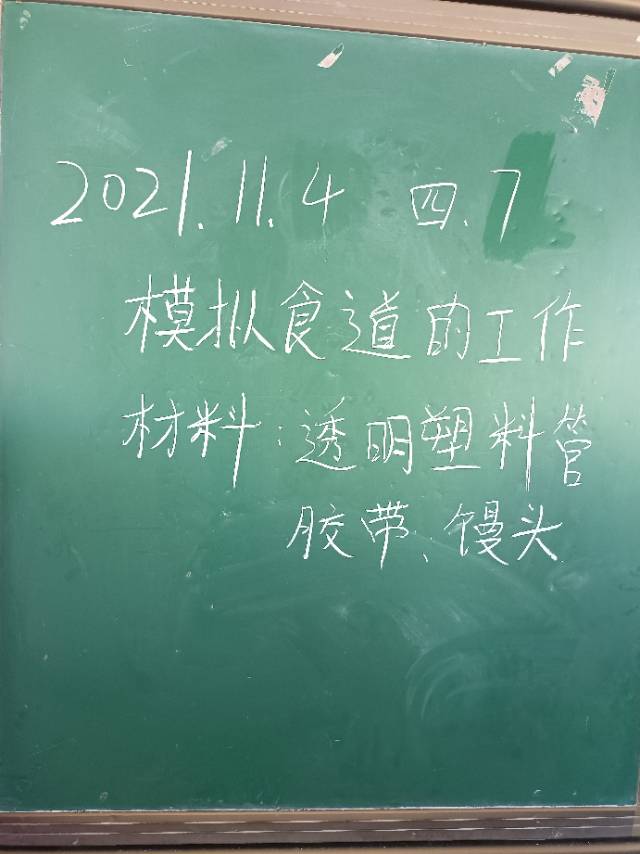 2021.11.4 四.7
模拟食道的工作
材料:透明塑料管
胶带、馒头